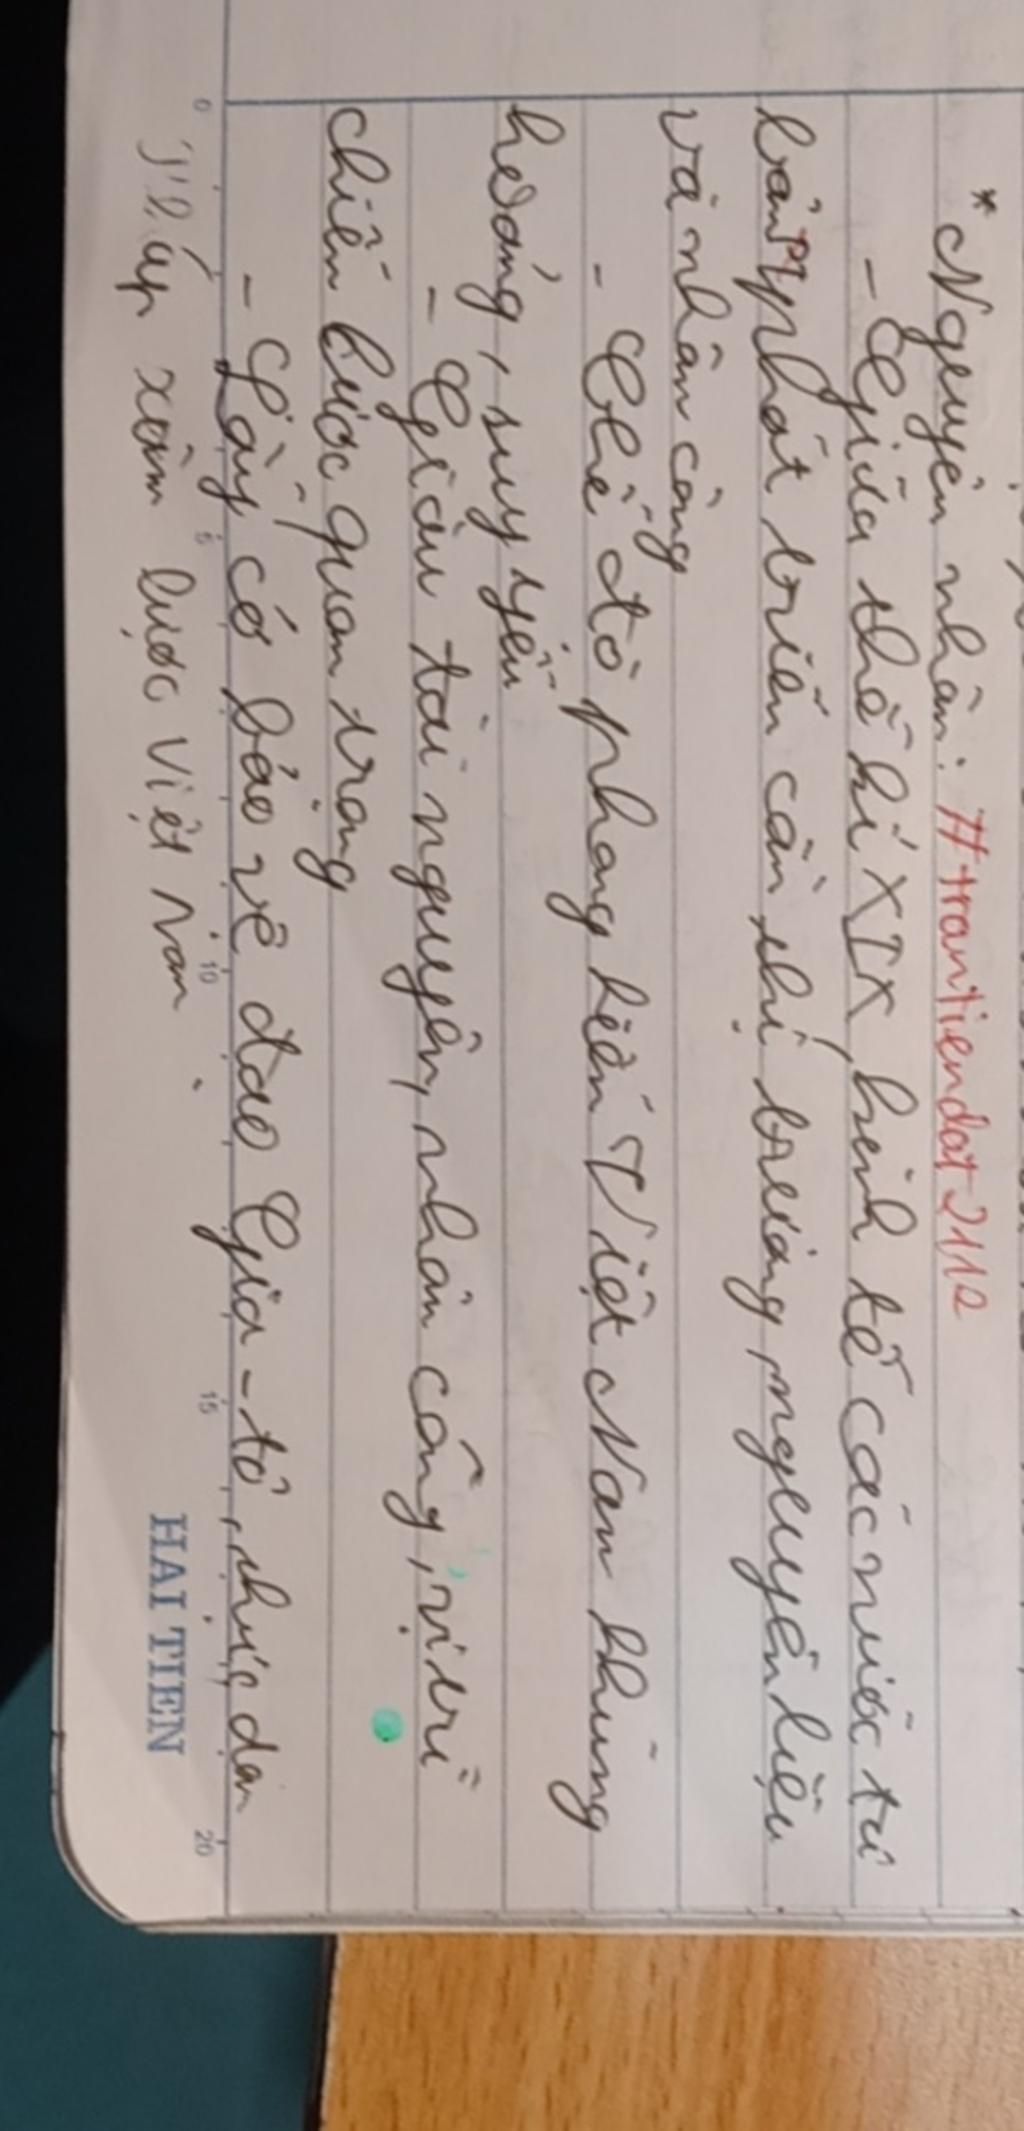 * Nguyên nhân: #trantiendat2112
- Giữa thế kỉ XIX, kinh tế các nước tư
bản phát triển cần thị trường, nguyên liệu
và nhân công
- Chế độ phong kiến Việt Nam khủng
hoảng, suy yếu
- Giàu tài nguyên, nhân công, vị trí
chiến lược quan trọng
- Lấy cớ bảo vệ đạo Gia-tô, thực dân
Pháp xâm lược Việt Nam.
0 5 10 15 20
HAI TIEN